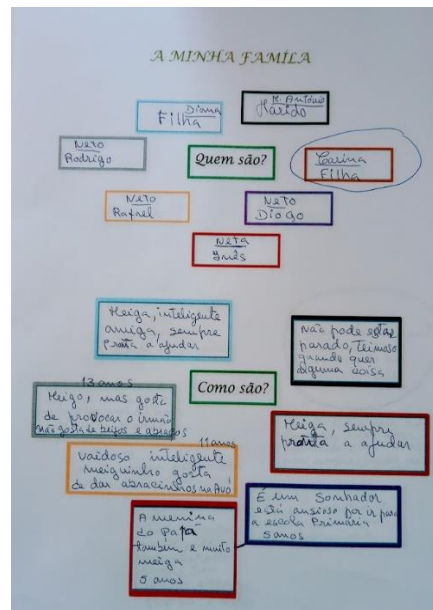 A MINHA FAMÍLA
Diana
Filha
M. António
Marido
Neto
Rodrigo
Quem são?
Carina
Filha
Neto
Rafael
Neto
Diogo
Neta
Inês
Meiga, inteligente
amiga, sempre
pronta a ajudar
Não pode estar
parado, Teimoso
quando quer
alguma coisa
13 anos
Meigo, mas gosta
de provocar o irmão
não gosta de beijos e abraços
Como são?
Meiga, sempre
pronta a ajudar
11 anos
vaidoso inteligente
meiguinho gosta
de dar abracinhos na Avó
É um Sonhador
está ansioso por ir para
a escola Primária
5 anos
A menina
do Papá
também e muito
meiga
5 anos